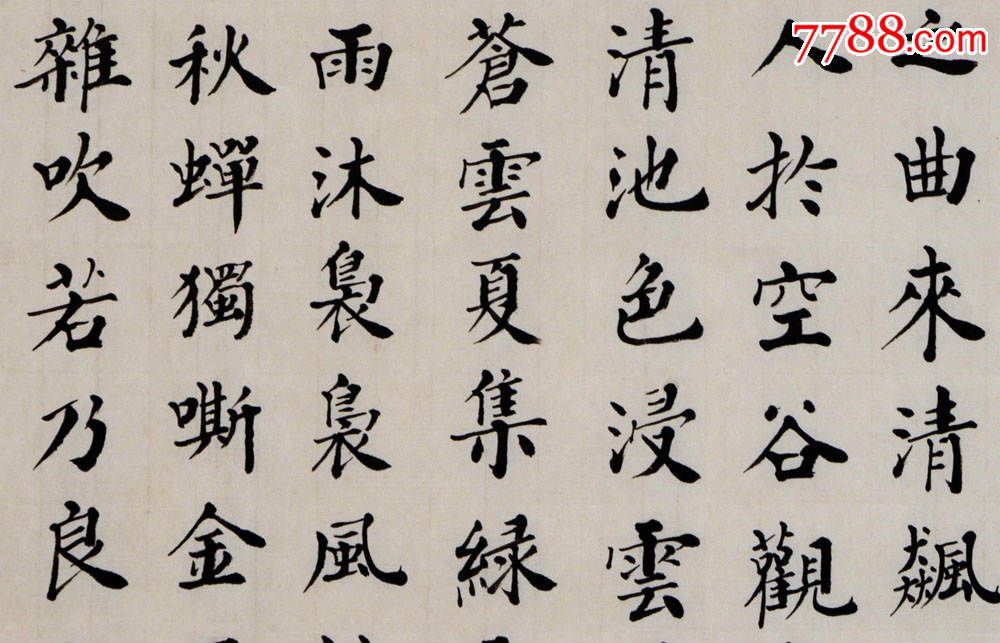 之曲來清飈
人於空谷觀
清池色浸雲
蒼雲夏集綠
雨沐裊裊風
秋蟬獨嘶金
雜吹若乃良
7788.com